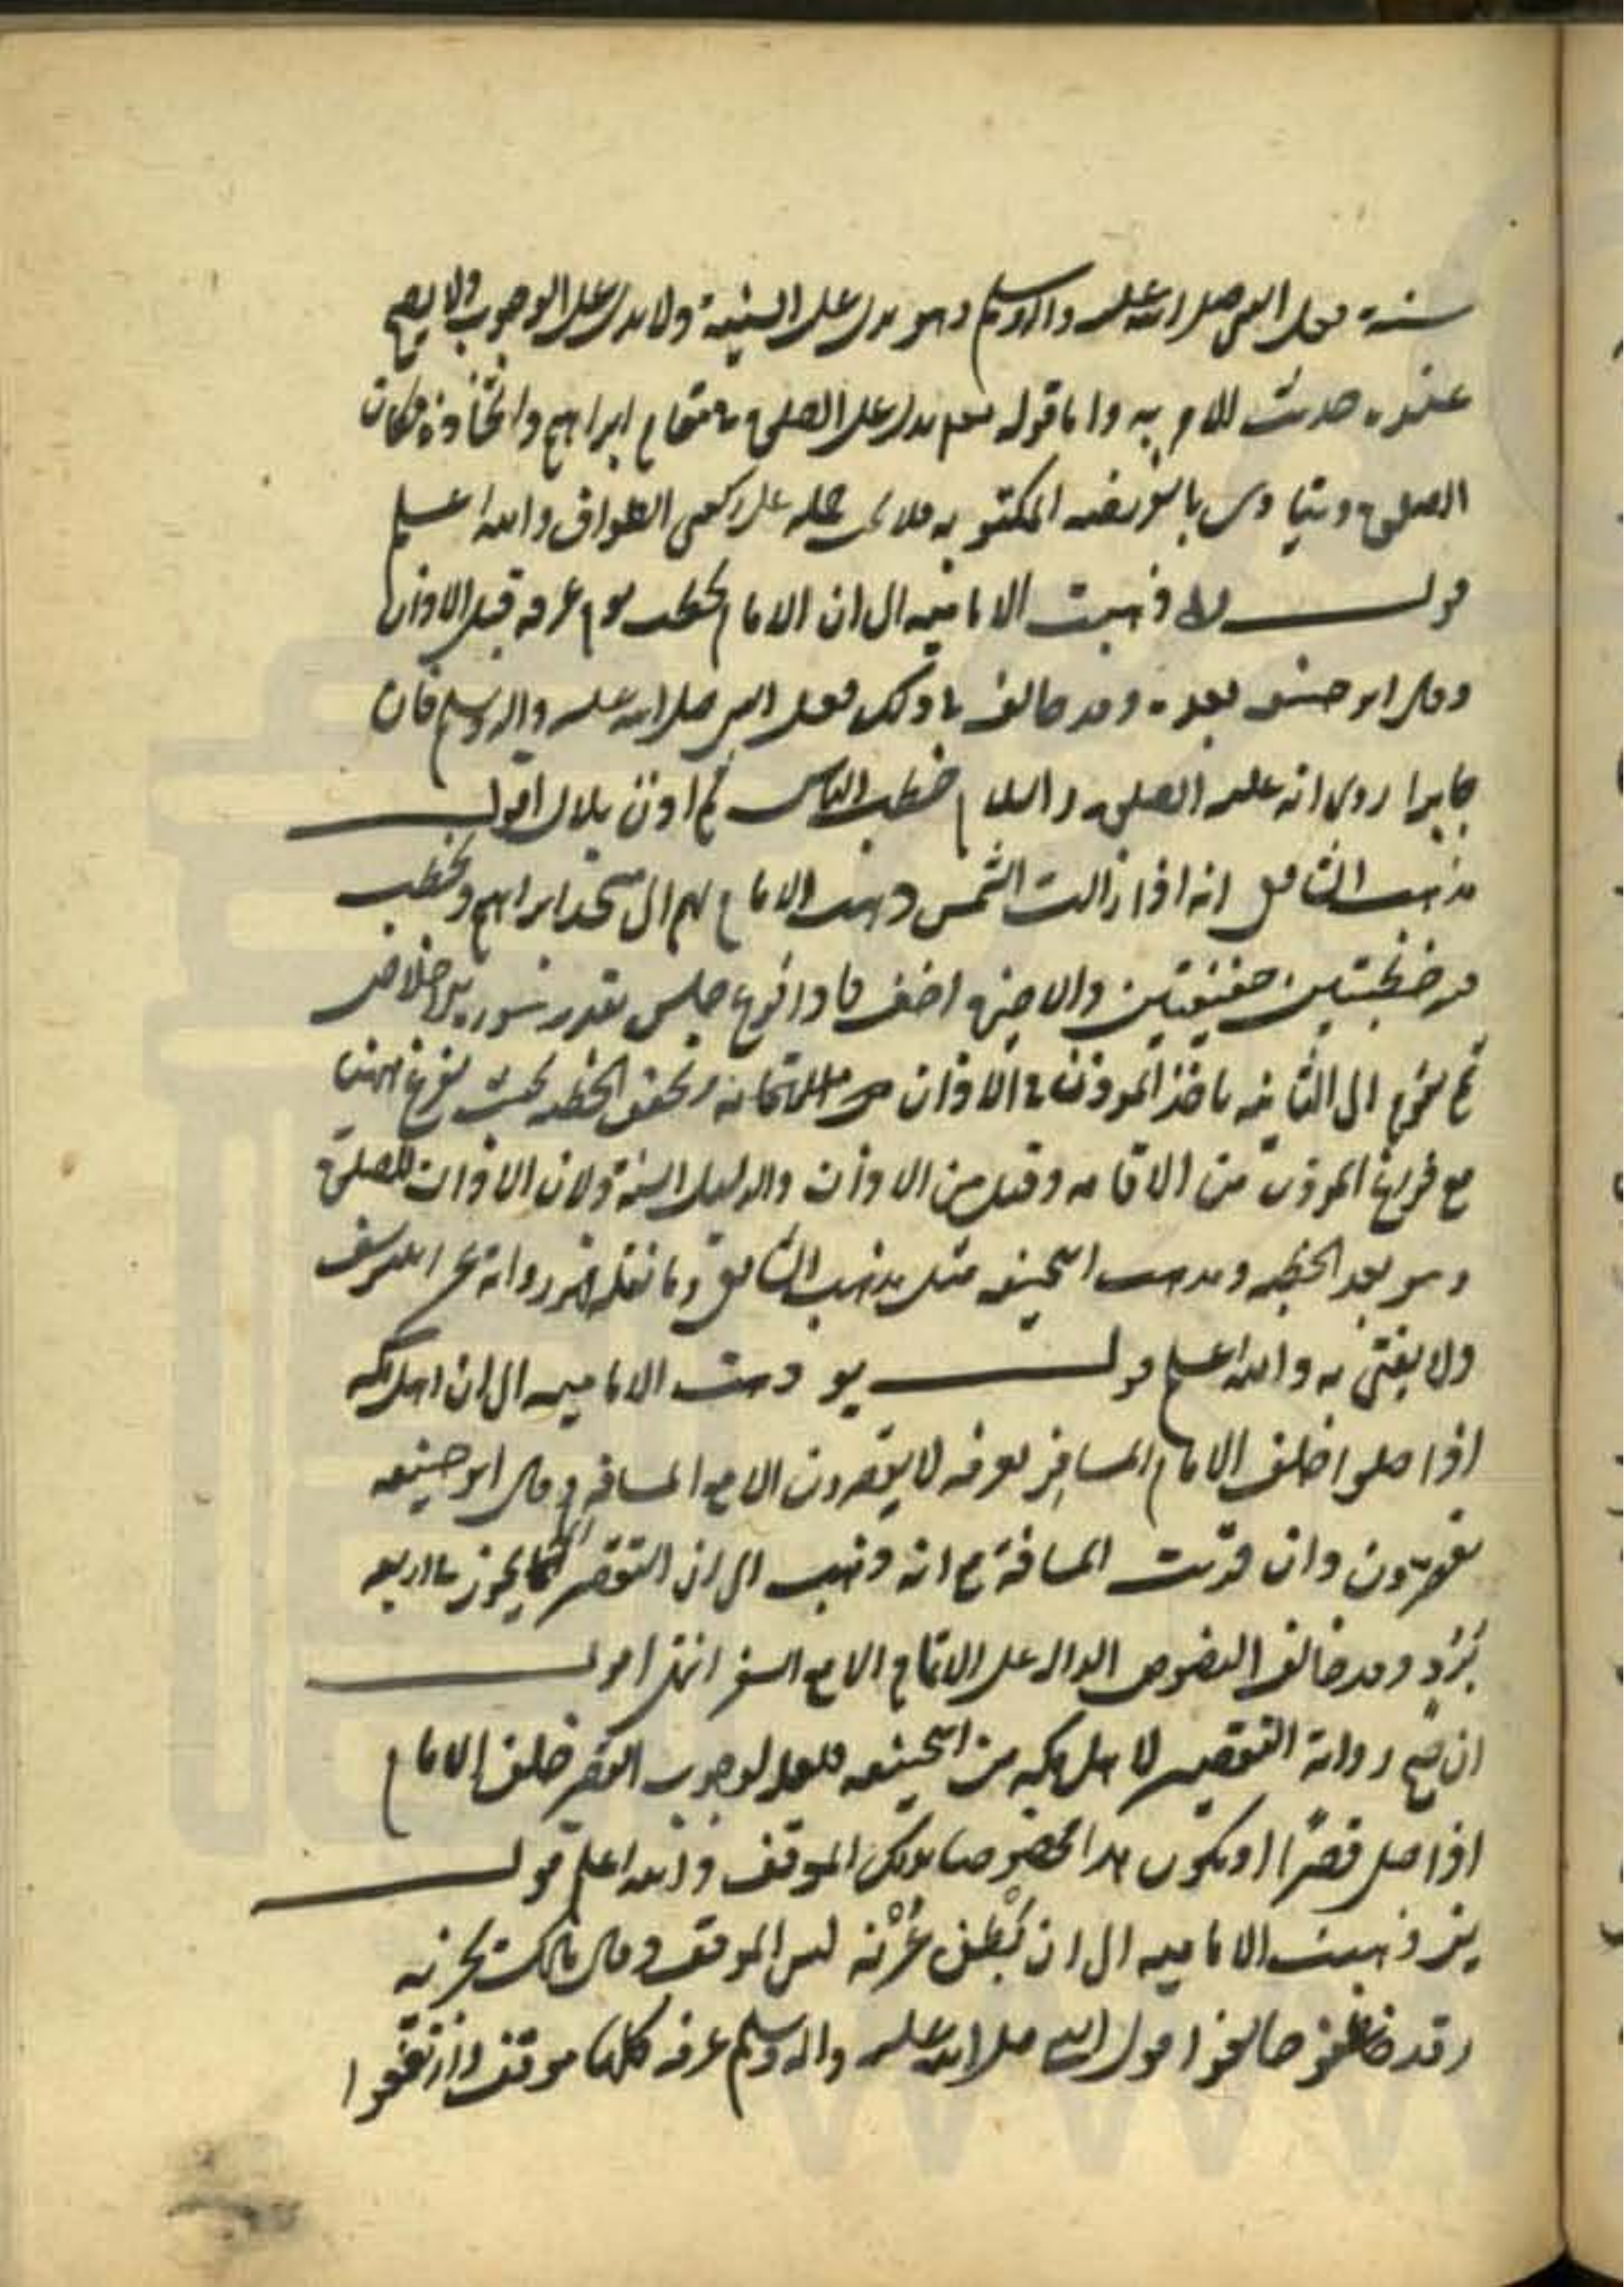 سنة فعل النبي صلى الله عليه واله وسلم وهو يدل على السنية ولا يدل على الوجوب ولا يصح
عنده حديث الامر به واما قوله تعالى يدل على الصلوة بمقام ابراهيم واتخاذه مكان
الصلوة ويتادى بالفريضة المكتوبة فلا يجب حمله على ركعتي الطواف والله اعلم
قوله ذهبت الامامية الى ان الامام يخطب يوم عرفة قبل الاذان
وقال ابو حنيفة بعده وقد خالف في ذلك فعل النبي صلى الله عليه واله وسلم فان
جابرا روى انه عليه الصلوة والسلام خطب الناس ثم اذن بلال اقول
مذهب الشافعي انه اذا زالت الشمس ذهب الامام بهم الى مسجد ابراهيم ويخطب
فيه خطبتين خفيفتين والاخيرة اخف فاذا فرغ جلس بقدر سورة الاخلاص
ثم يقوم الى الثانية ياخذ المؤذن في الاذان ويخفف الخطبة بحيث يفرغ منها
مع فراغ المؤذن من الاقامة وقيل من الاذان والدليل السنة ولان الاذان للصلوة
وهو بعد الخطبة ومذهب ابي حنيفة مثل مذهب الشافعي وما نقله فهو رواية عن ابي يوسف
ولا يفتى به والله اعلم قوله يو ذهبت الامامية الى ان اهل مكة
اذا صلوا خلف الامام المسافر بعرفة لا يقصرون الا مع المسافة وقال ابو حنيفة
يقصرون وان قربت المسافة مع انه ذهب الى ان التقصير انما يجوز في اربعة
برد وقد خالف النصوص الدالة على الاتمام الا مع السفر انتهى اقول
ان صح رواية التقصير لاهل مكة من ابي حنيفة فلعله لوجوب القصر خلف الامام
اذا صلى قصرا او يكون هذا مخصوصا بذلك الموقف والله اعلم قوله
يز ذهبت الامامية الى ان بطن عرنة ليس الموقف وقال مالك يجزيه
وقد خالف قول النبي صلى الله عليه واله وسلم عرفة كلها موقف وارتفعوا